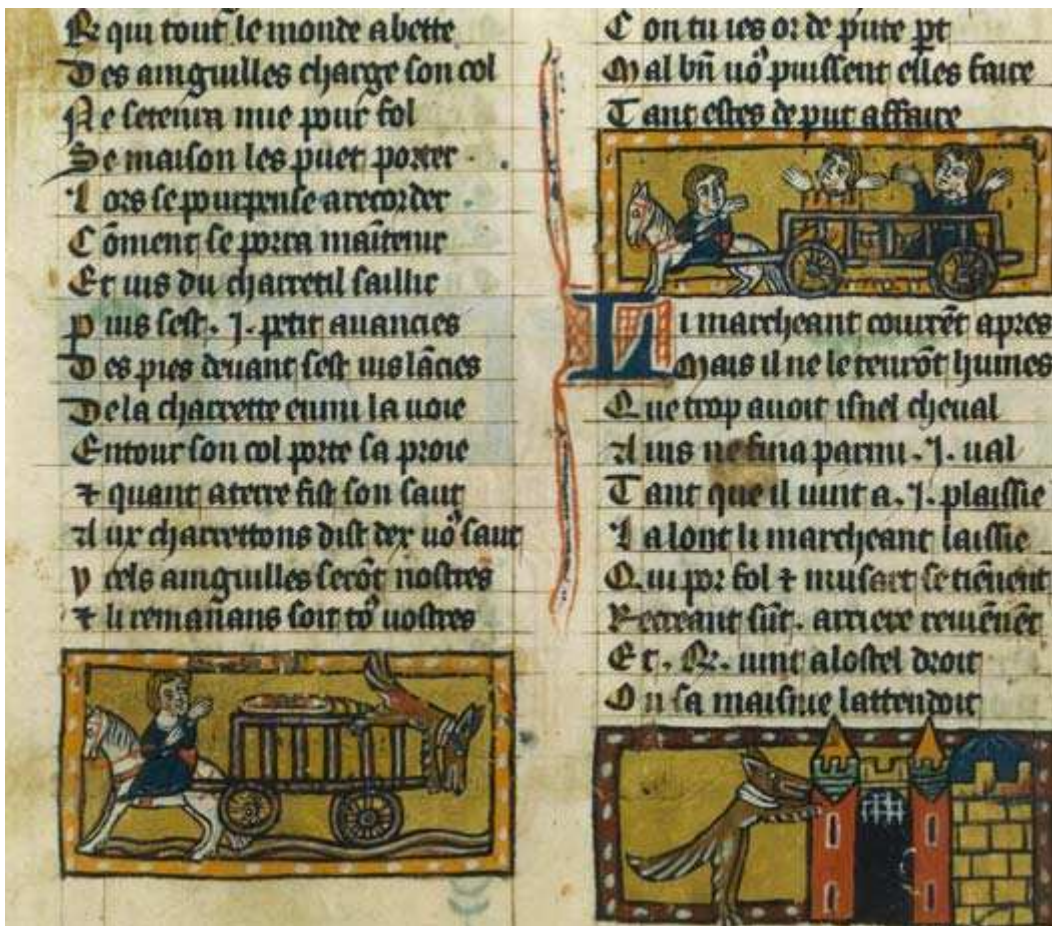 R qui tout le monde abette
Des anguilles charge son col
Ne se tenra mie pour fol
Se maison les puet porter
Lors se pourpense a recorder
Cōment se porra maītenir
Et ius du charretil saillir
Puis sest .J. petit auancies
Des pies deuant sest ius lācies
De la charrette enmi la uoie
Entour son col porte sa proie
⁊ quant a terre fist son saut
Aux charrettons dist dex uoꝰ saut
Y cels anguilles serōt nostres
⁊ li remañans soit toꝰ uostres
Con tu ies or de pute pt
Mal bñ uoꝰ puissent elles faire
Tant estes de put affaire
Li marcheant courēt apres
Mais il ne le tenrōt huimes
Que trop auoit isnel cheual
Ains ne fina parmi .J. ual
Tant que il uint a .J. plaissie
La lont li marcheant laissie
Qui por fol ⁊ musart se tiēnent
Recreant sūt. arriere reuiēnēt
Et .R. uint a lostel droit
On sa maisnie lattendoit